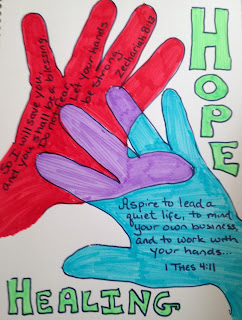 So I will save you,
and you shall be a blessing.
Do not fear,
Let your hands
be strong.
Zechariah 8:13
HOPE
Aspire to lead a
quiet life, to mind
your own business,
and to work with
your hands...
1 Thes 4:11
HEALING